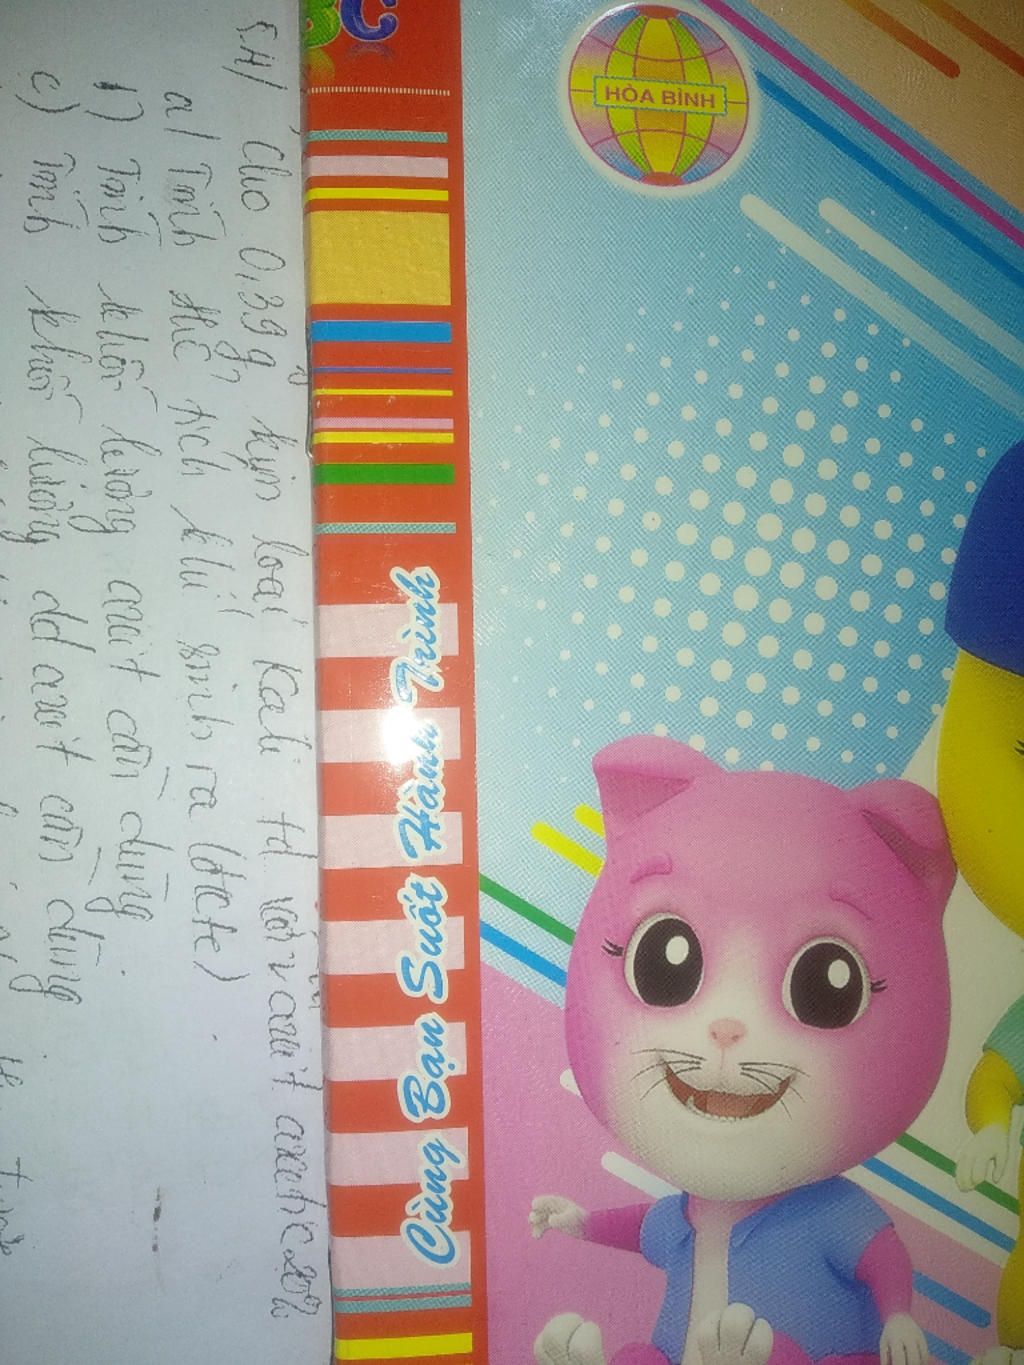 BC
HÒA BÌNH
Cùng Bạn Suốt Hành Trình
Cho 0,39g kim loại Kali td với axit
a) Tính thể tích khí sinh ra (đktc)
b) Tính khối lượng axit cần dùng
c) Tính khối lượng dd axit cần dùng